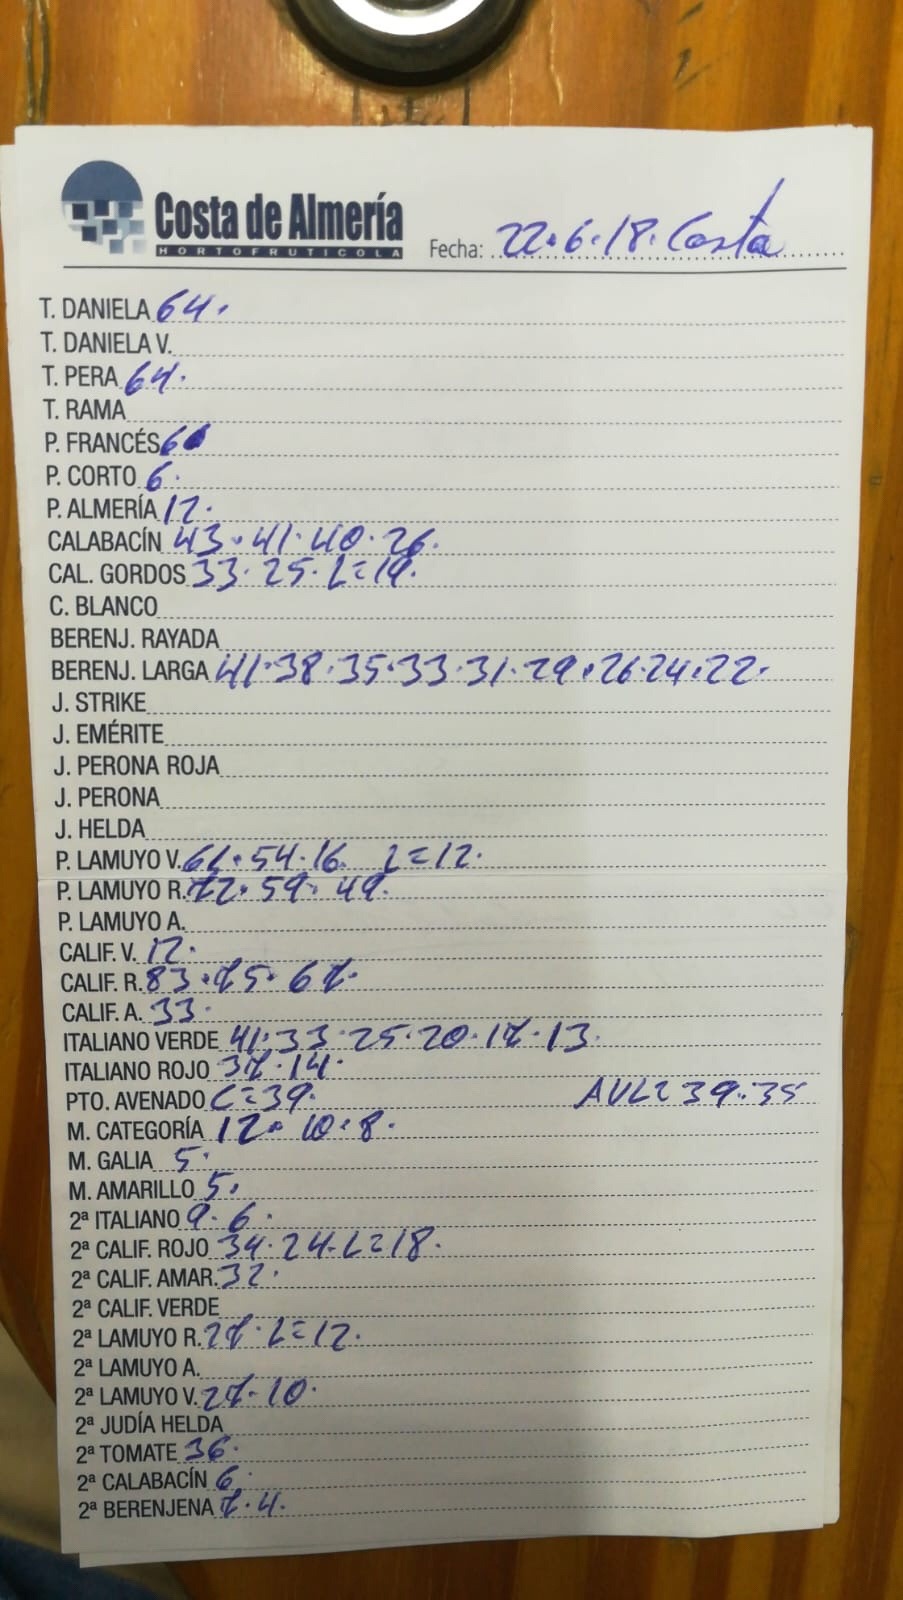 Costa de Almería
HORTOFRUTICOLA
Fecha: 22.6.18. Costa
T. DANIELA 64.
T. DANIELA V.
T. PERA 64.
T. RAMA
P. FRANCÉS
P. CORTO 6.
P. ALMERÍA 12.
CALABACÍN 43.41.40.26.
CAL. GORDOS 33.25.L=19.
C. BLANCO
BERENJ. RAYADA
BERENJ. LARGA 41.38.35.33.31.29.26.24.22.
J. STRIKE
J. EMÉRITE
J. PERONA ROJA
J. PERONA
J. HELDA
P. LAMUYO V. 54.16. L=12.
P. LAMUYO R. 72.59.49.
P. LAMUYO A.
CALIF. V. 12.
CALIF. R. 83.75.67.
CALIF. A. 33.
ITALIANO VERDE 41.33.25.20.17.13.
ITALIANO ROJO 37.14.
PTO. AVENADO C=39. AVL=39.35
M. CATEGORÍA 12.10.8.
M. GALIA 5.
M. AMARILLO 5.
2ª ITALIANO 9.6.
2ª CALIF. ROJO 34.24.L=18.
2ª CALIF. AMAR. 32.
2ª CALIF. VERDE
2ª LAMUYO R. 27.L=12.
2ª LAMUYO A.
2ª LAMUYO V. 27.10.
2ª JUDÍA HELDA
2ª TOMATE 36.
2ª CALABACÍN 6.
2ª BERENJENA 7.4.